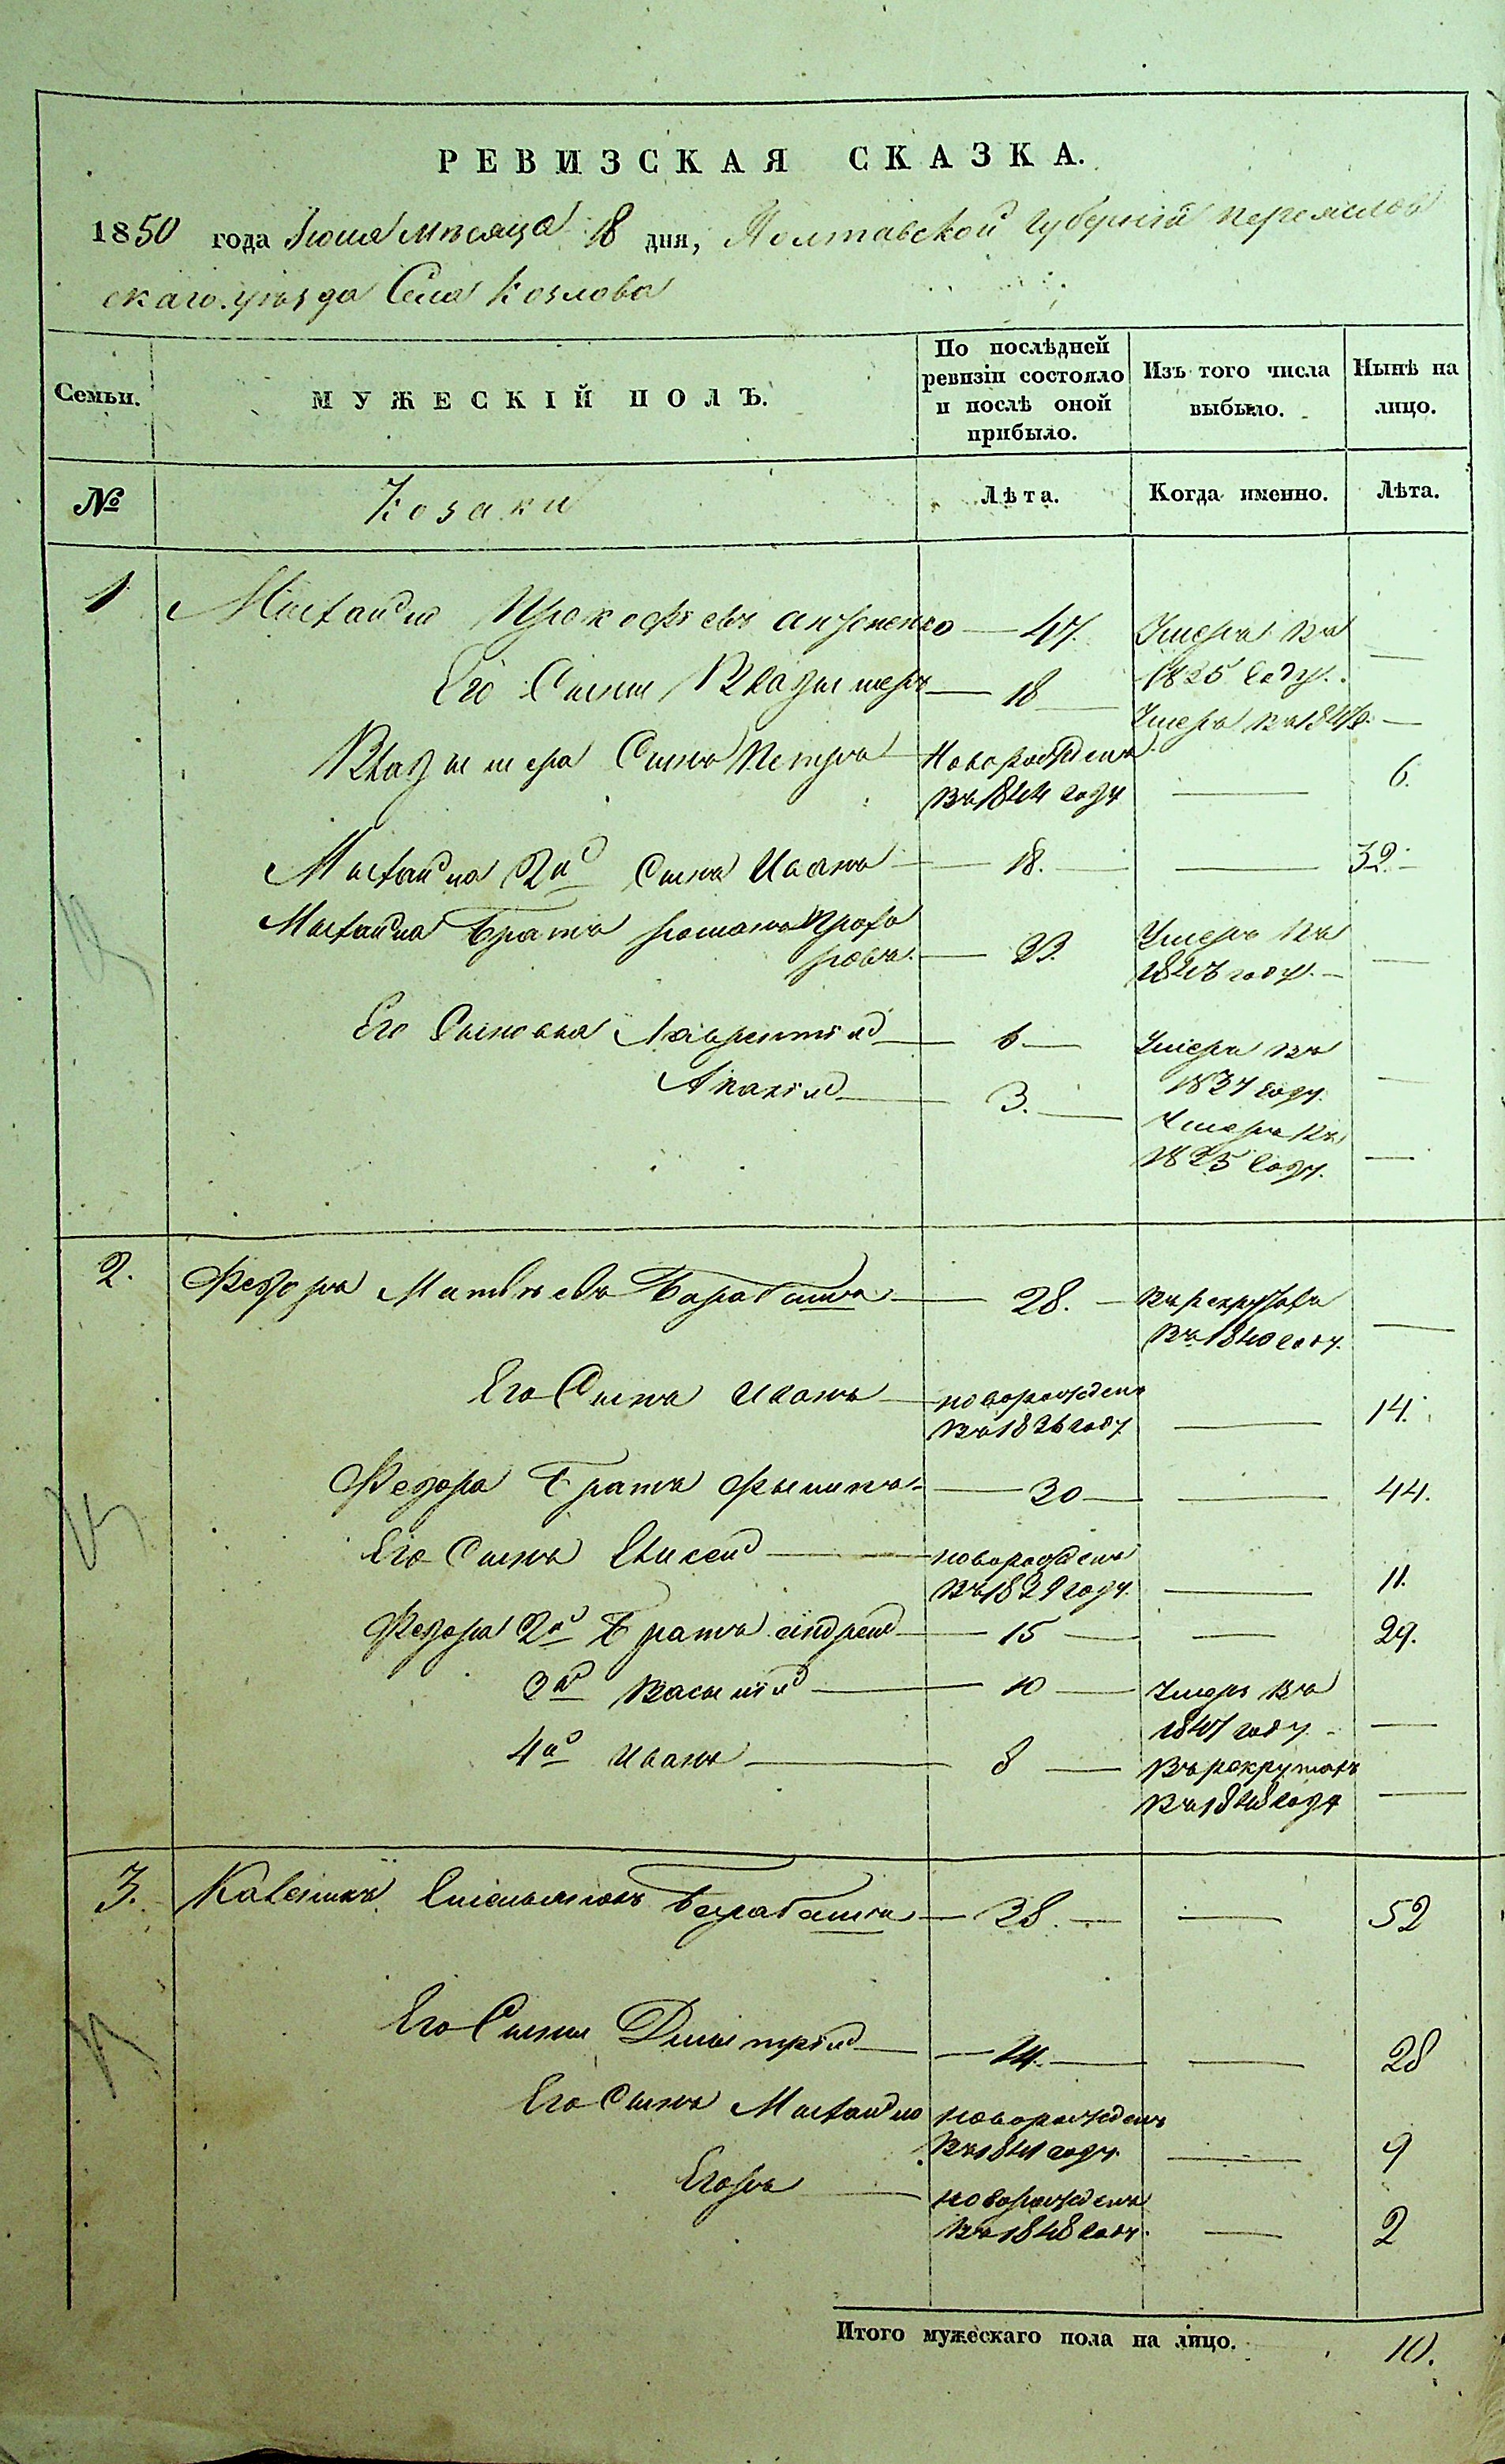 РЕВИЗСКАЯ СКАЗКА.
1850 года месяца 18 дня, Полтавской Губернии переяслов
скаго уезда Села Козлова
Семьи.
МУЖЕСКІЙ ПОЛЪ.
По послѣдней ревизіи состояло и послѣ оной прибыло.
Изъ того числа выбыло.
Нынѣ на лицо.
№
Козаки
Лѣта.
Когда именно.
Лѣта.
1 Михайло Прокофьевъ — 47. Умеръ въ
1825 году. —
Его Сынъ Владымеръ — 18 — Умеръ въ —
Владымера Сынъ Петръ Новорожденъ
въ 1844 году — 6.
Михайла 2й Сынъ Иванъ — 18. — — 32. —
Михайла Братъ романъ
— 33. Умеръ въ
году. — —
Его Сыновья Лаврентій — 6 — Умеръ въ
1837 году. —
Ананій — 3. — Умеръ въ
1825 году. —
2. Федоръ Матвѣевъ Барабашъ — 28. — Въ рекрутахъ
въ 1840 году. —
Его Сынъ Иванъ — новорожденъ
въ 1836 году — 14.
Федора Братъ — 30 — — 44.
Его Сынъ Елисей — новорожденъ
въ 1839 году. — 11.
Федора 2й Братъ андрей — 15 — — 29.
3й Василій — 10 — Умеръ въ
1841 году. — —
4й Иванъ — 8 — Въ рекрутахъ
въ 1848 году —
3. Каленикъ Емельяновъ Барабашъ — 38. — — 52
Его Сынъ Дмытрій — 14. — — 28
Его Сынъ Михайло новорожденъ
въ 1841 году. — 9
Егоръ — новорожденъ
въ 1848 году. — 2
Итого мужескаго пола на лицо. 10.